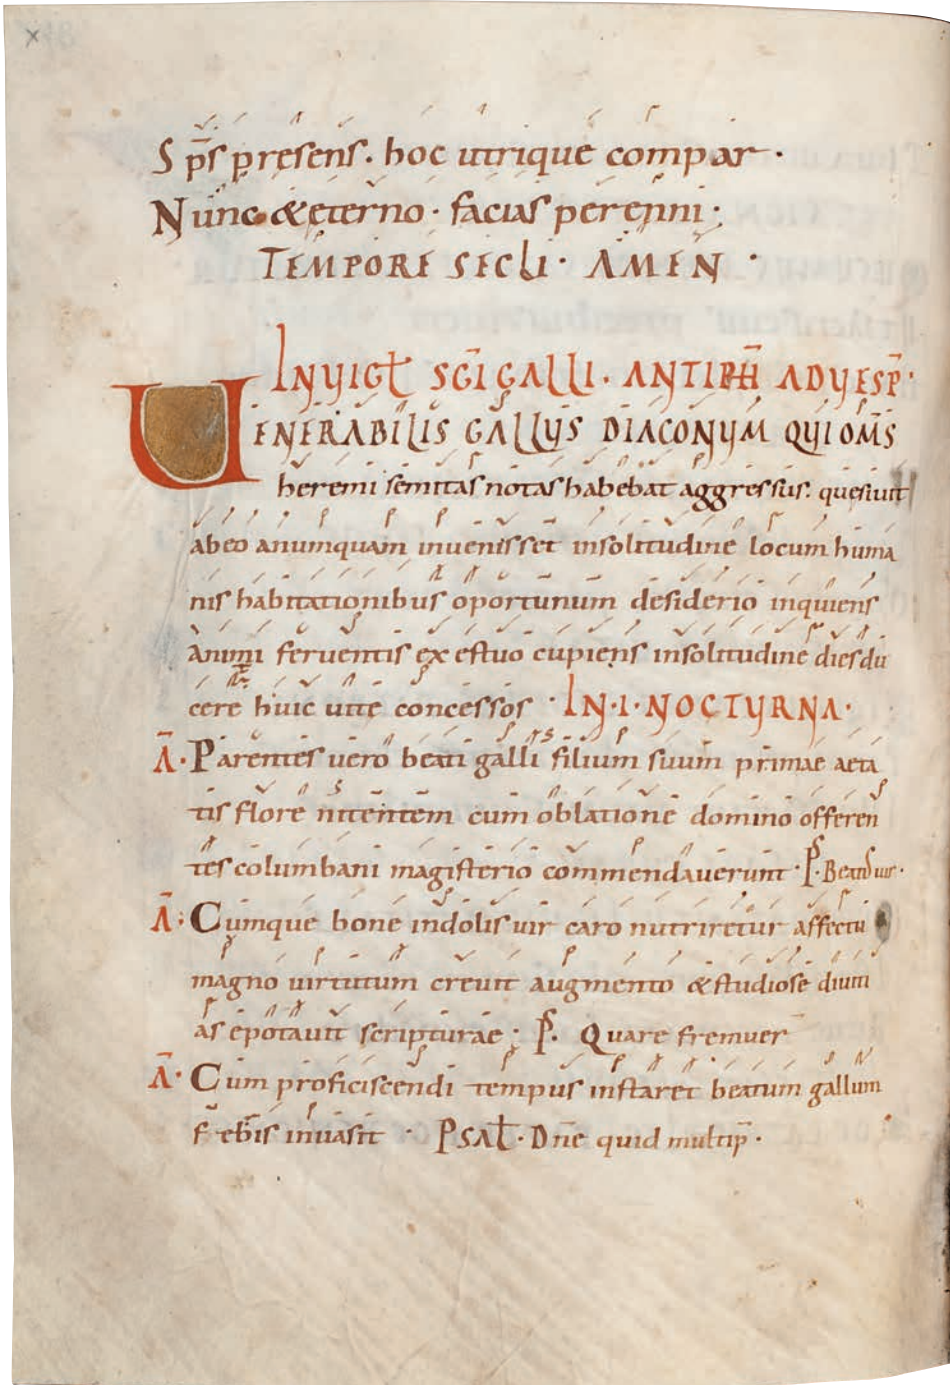 S p̄s presens. hoc utrique compar·
Nunc & eterno· facias perenni·
TEMPORE SECLI· AMEN·
IN VIGL̄ SCĪ GALLI. ANTIPH̄ AD VESP̄·
UENERABILIS GALLUS DIACONUM QUI OM̄S
heremi semitas notas habebat aggressus. quesiuit
ab eo an umquam inuenisset in solitudine locum huma
nis habitationibus oportunum desiderio inquiens
animi feruentis ex estuo cupiens in solitudine dies du
cere huic uite concessos · IN·I·NOCTURNA·
Ā·Parentes uero beati galli filium suum primae aeta
tis flore nitentem cum oblatione domino offeren
tes columbani magisterio commendauerunt·P̄·Beatus uir·
Ā·Cumque bone indolis uir caro nutriretur affectu
magno uirtutum creuit augmento & studiose diuin
as epotauit scripturae· P̄. Quare fremuer̄
Ā·Cum proficiscendi tempus instaret beatum gallum
f̄ebris inuasit · PSAL̄·Dn̄e quid multip̄·